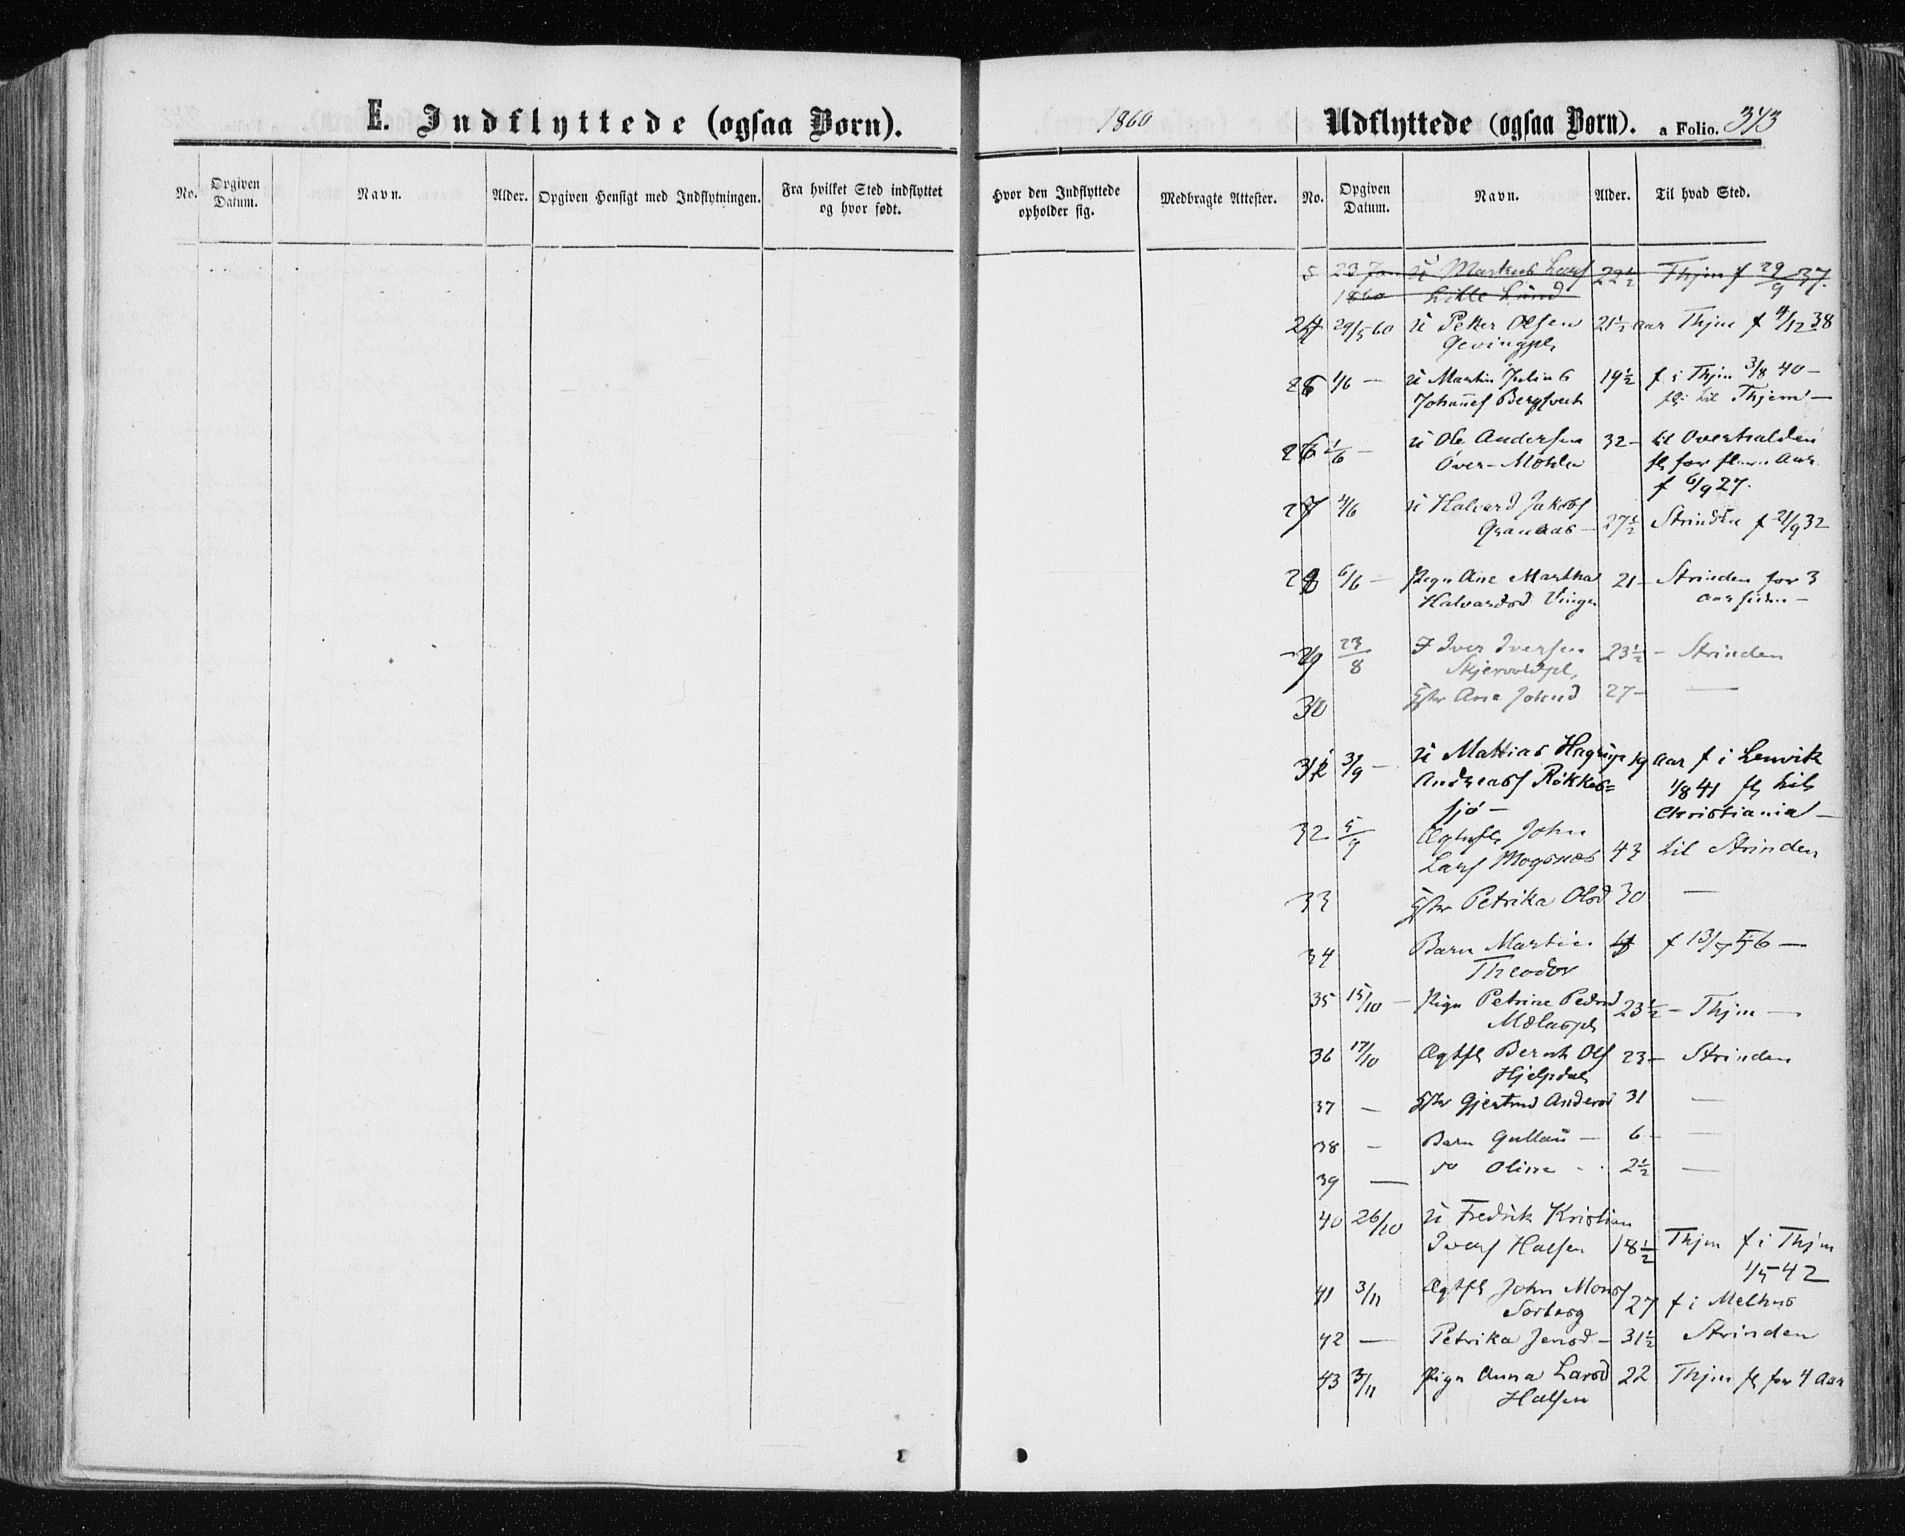 E. Indflyttede (ogsaa Børn).
1860
Udflyttede (ogsaa Børn). a Folio. 343
No.
Opgiven Datum.
Navn.
Alder.
Opgiven Hensigt med Indflytningen.
Fra hvilket Sted indflyttet og hvor født.
Hvor den Indflyttede opholder sig.
Medbragte Attester.
No.
Opgiven Datum.
Navn.
Alder.
Til hvad Sted.
5 23 Jan U Markus Larsf 22½ Thjm f 29/9 37.
1860 Lille Lund
24 29/5 60 U Petter Olsen 21½ aar Thjm f 4/12 38
Gevingpl
25 1/6 — U Martin Julius 19½ f i Thjm 3/8 40 —
Johannesf Bergsvet fl: til Thjem —
26 1/6 — U Ole Andersen 32 — til Overhalden
Over-Mohlen fl for flere Aar
f 6/9 27.
27 4/6 U Halvard Jakobsf
Granaas — 27½ Strinden f 21/9 32
28 6/6 — Pige Ane Martha 21 — Strinden for 3
Halvardsd Vinge aar siden —
29 23/8 I Iver Iversen 23½ — Strinden
Skjervoldpl,
30 Ane Johnsd 27 — —
31 3/9 — U Mattias Hagrup 19 aar f i Lenvik
Andreasf Røkkes= 1/8 41 fl til
sjø — Christiania —
32 5/9 Ægtfl John
Larsf Mogsnæs 43 til Strinden
33 Petrika Olsd 30 —
34 Barn Martin 4 f 13/5 56 —
Theodor
35 15/10 — Pige Petrine Pedersd 23½ — Thjm —
36 17/10 Ægtfl Bernt Olsf 23 — Strinden
Hjelpdal
37 — Gjertrud Andersd 31 —
38 — Barn — 6 — —
39 — do Oline 2½ —
40 26/10 U Fredrik Kristian
Iversf Halsen 18½ Thjm f i Thjm
1/5 42
41 3/11 Ægtfl John Monsf
Sorberg 27 f i Melhus
42 — Petrika Jensd — 31½ Strinden
43 3/11 Pige Anna Larsd 22 Thjm fl for 4 Aar
Halsen